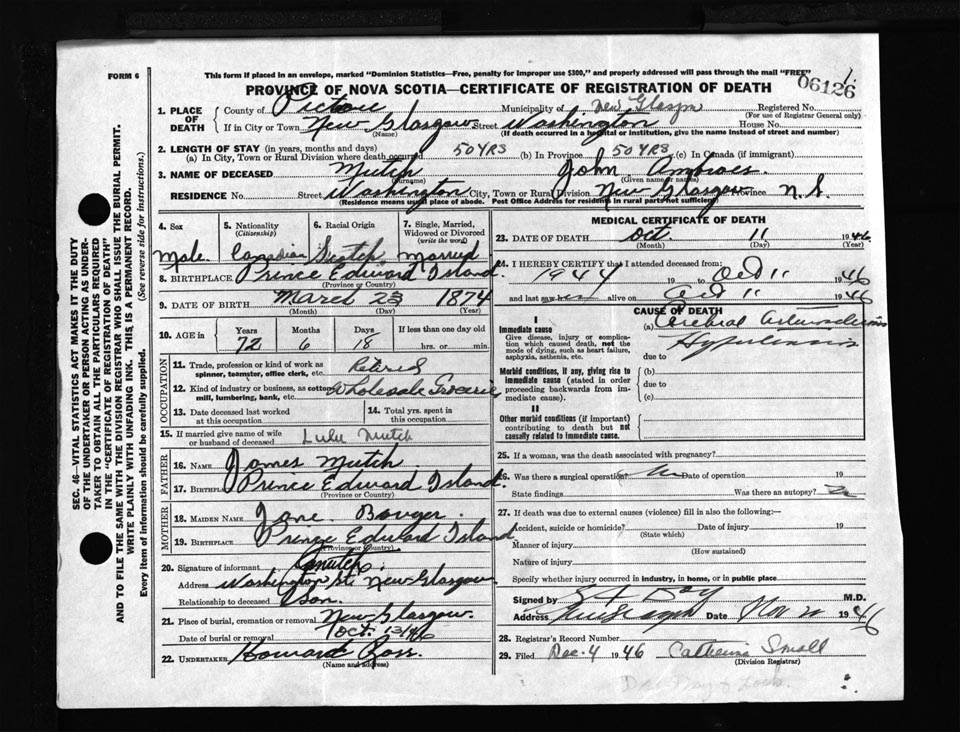 FORM 6
This form if placed in an envelope, marked "Dominion Statistics—Free, penalty for improper use $300," and properly addressed will pass through the mail "FREE"
1.
PROVINCE OF NOVA SCOTIA—CERTIFICATE OF REGISTRATION OF DEATH
06126
1. PLACE OF DEATH County of Pictou Municipality of New Glasgow Registered No.
(For use of Registrar General only)
If in City or Town New Glasgow Street Washington House No.
(Name) (If death occurred in a hospital or institution, give the name instead of street and number)
2. LENGTH OF STAY (in years, months and days)
(a) In City, Town or Rural Division where death occurred 50 YRS (b) In Province 50 YRS (c) In Canada (if immigrant)
3. NAME OF DECEASED Mutch John
(Surname) (Given name or names)
RESIDENCE No. Street Washington City, Town or Rural Division New Glasgow Province N.S.
(Residence means usual place of abode. Post Office Address for residents in rural parts not sufficient)
4. Sex 5. Nationality 6. Racial Origin 7. Single, Married, Widowed or Divorced
(Citizenship) (write the word)
Male Canadian Scotch Married
8. BIRTHPLACE Prince Edward Island
(Province or Country)
9. DATE OF BIRTH March 23 1874
(Month) (Day) (Year)
10. AGE in Years Months Days If less than one day old
72 6 18 hrs. or min.
OCCUPATION
11. Trade, profession or kind of work as spinner, teamster, office clerk, etc. Retired
12. Kind of industry or business, as cotton mill, lumbering, bank, etc. Wholesale
13. Date deceased last worked at this occupation
14. Total yrs. spent in this occupation
15. If married give name of wife or husband of deceased Lulu Mutch
FATHER
16. NAME James Mutch
17. BIRTHPLACE Prince Edward Island
(Province or Country)
MOTHER
18. MAIDEN NAME Jane
19. BIRTHPLACE Prince Edward Island
(Province or Country)
20. Signature of informant
Address Washington St. New Glasgow
Relationship to deceased Son.
21. Place of burial, cremation or removal New Glasgow.
Date of burial or removal Oct. 13/46
22. UNDERTAKER Howard Ross.
(Name and address)
MEDICAL CERTIFICATE OF DEATH
23. DATE OF DEATH Oct. 11 1946
(Month) (Day) (Year)
24. I HEREBY CERTIFY that I attended deceased from:
1944 19 to Oct 11 1946
and last saw alive on Oct 11 1946
CAUSE OF DEATH
I
Immediate cause (a) Cerebral
Give disease, injury or complication which caused death, not the mode of dying, such as heart failure, asphyxia, asthenia, etc.
due to
Morbid conditions, if any, giving rise to immediate cause (stated in order proceeding backwards from immediate cause).
(b)
due to
(c)
II
Other morbid conditions (if important) contributing to death but not causally related to immediate cause.
25. If a woman, was the death associated with pregnancy?
26. Was there a surgical operation? No Date of operation 19
State findings Was there an autopsy? No
27. If death was due to external causes (violence) fill in also the following:—
Accident, suicide or homicide? Date of injury 19
(State which)
Manner of injury
(How sustained)
Nature of injury
Specify whether injury occurred in industry, in home, or in public place
Signed by Day M.D.
Address New Glasgow Date Nov 20 1946
28. Registrar's Record Number
29. Filed Dec. 4 1946 Catherine Small
(Division Registrar)
SEC. 46—VITAL STATISTICS ACT MAKES IT THE DUTY
OF THE UNDERTAKER OR PERSON ACTING AS UNDER-
TAKER TO OBTAIN ALL THE PARTICULARS REQUIRED
IN THE "CERTIFICATE OF REGISTRATION OF DEATH"
AND TO FILE THE SAME WITH THE DIVISION REGISTRAR WHO SHALL ISSUE THE BURIAL PERMIT.
WRITE PLAINLY WITH UNFADING INK. THIS IS A PERMANENT RECORD.
Every item of information should be carefully supplied. (See reverse side for instructions.)